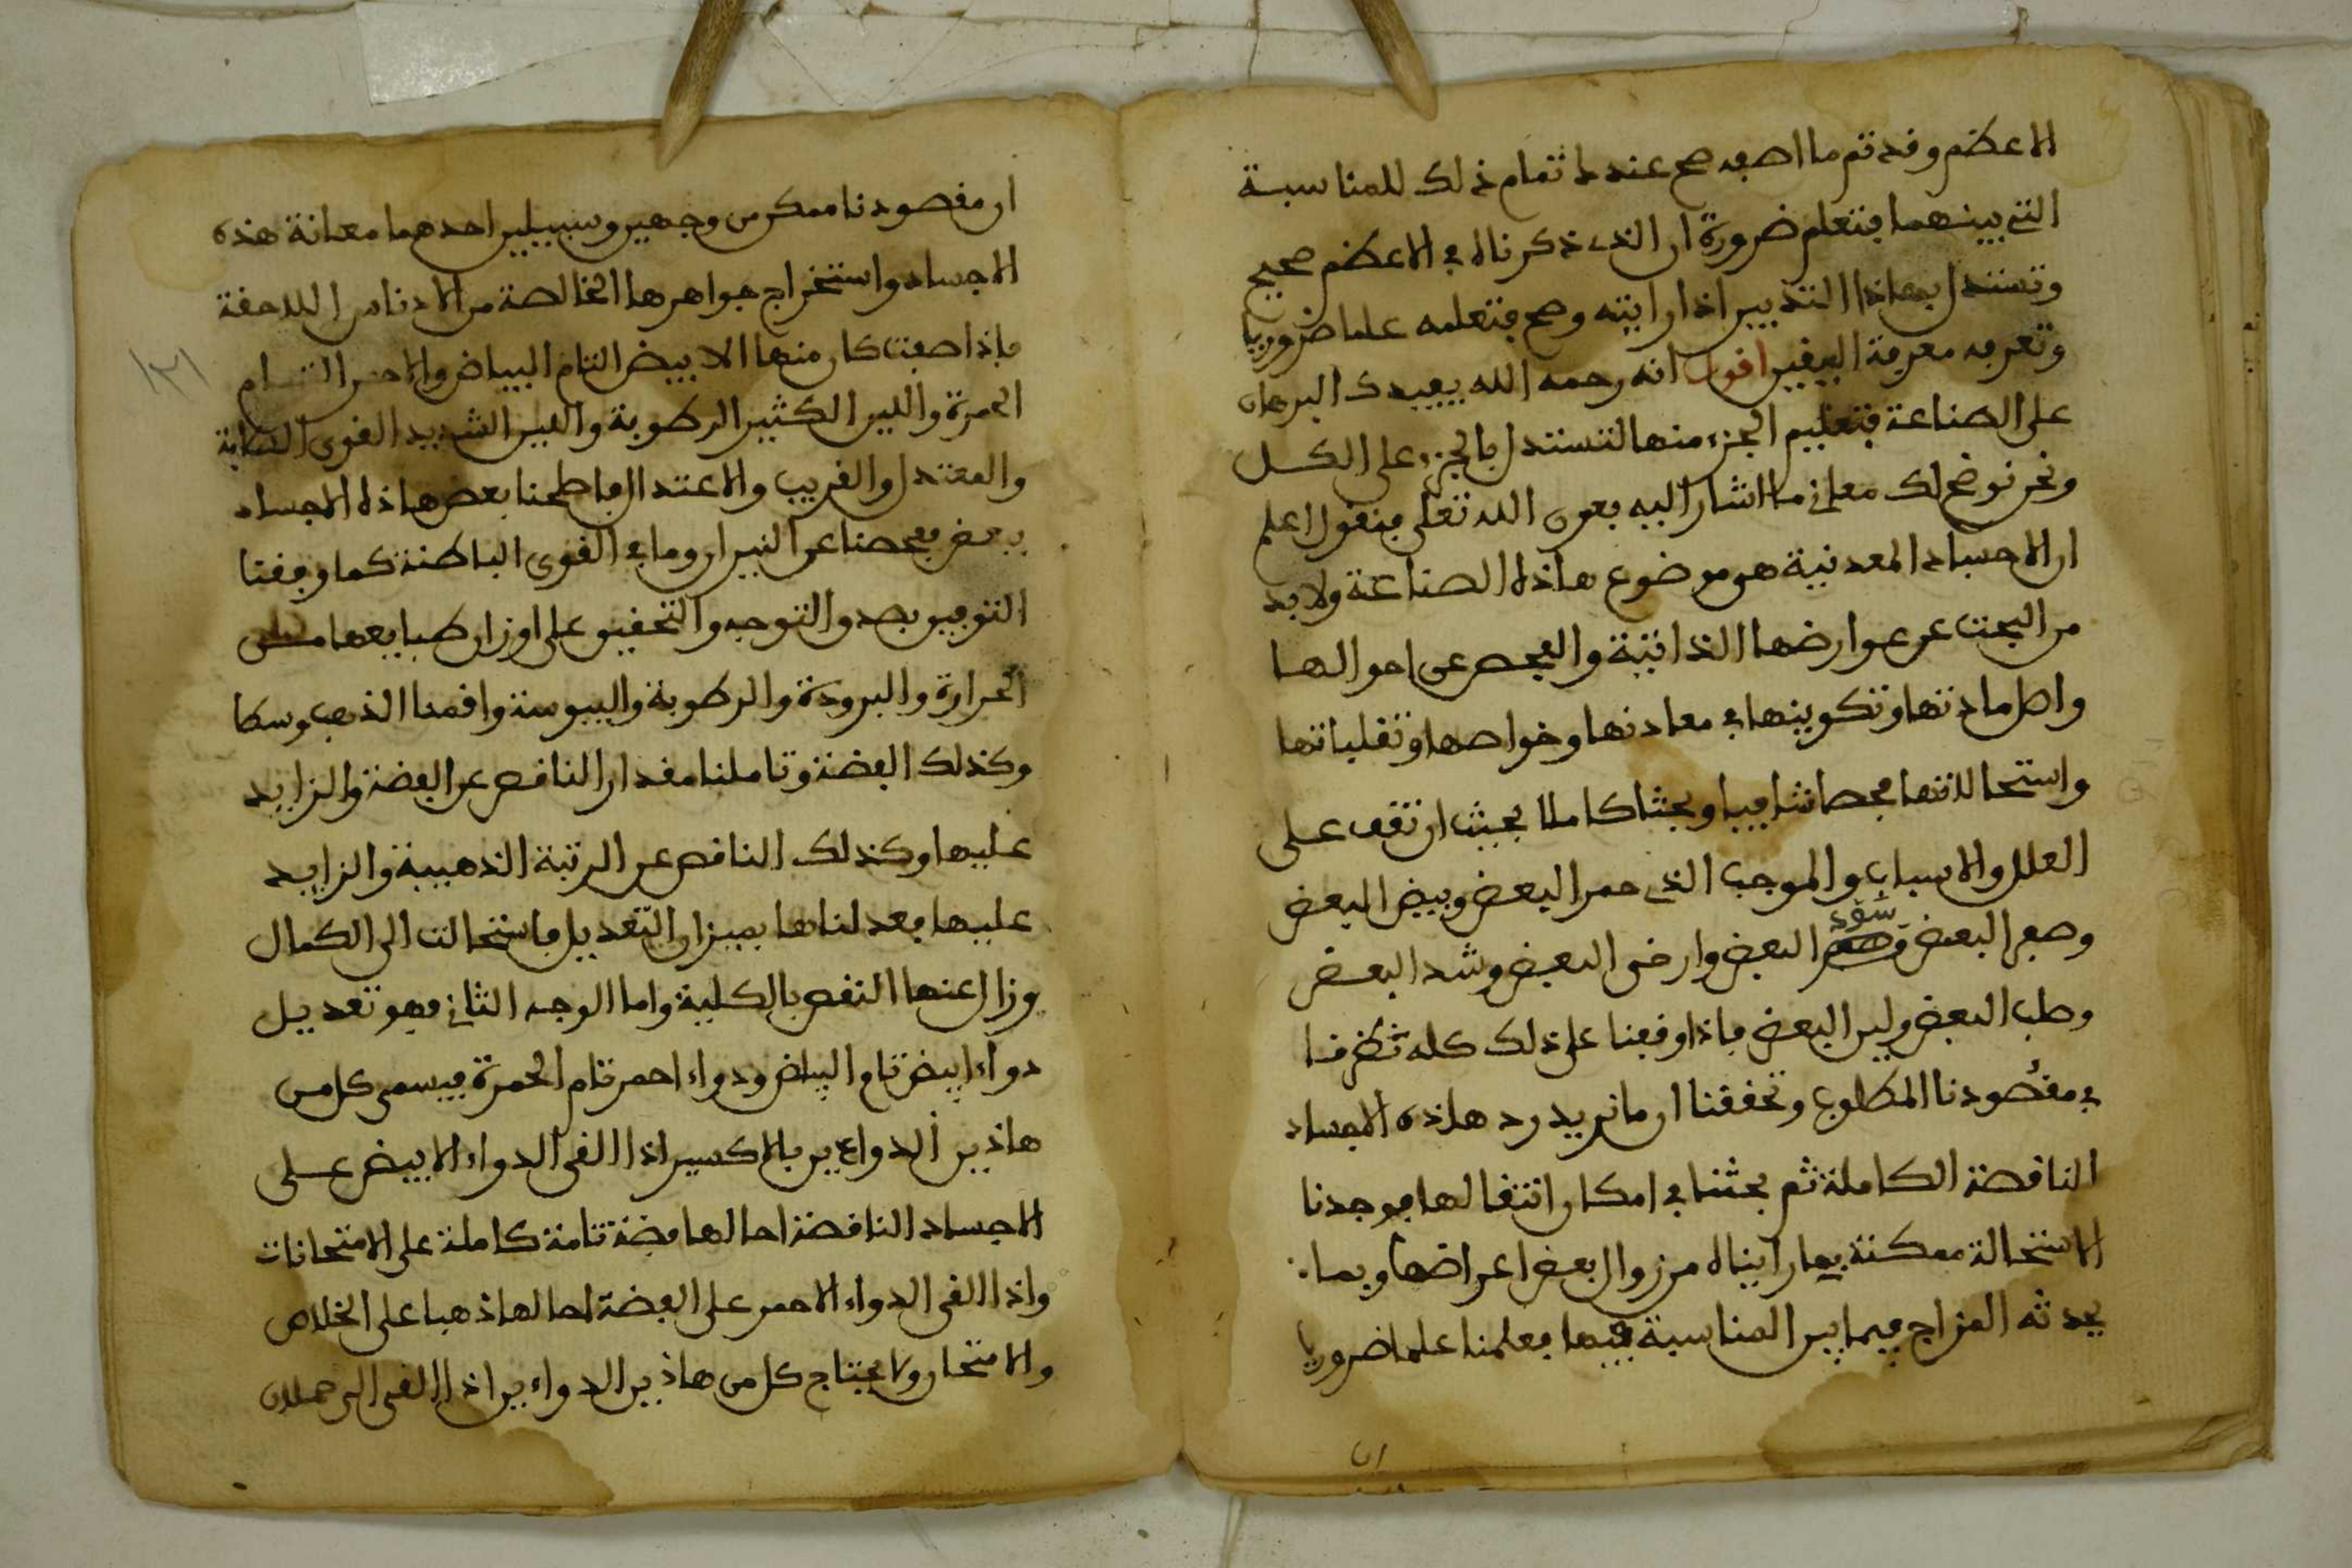 الاعظم وقد تم ما اصفه صح عندك تمام ذلك للمناسبة
التي بينهما فتعلم ضرورة ان الذي ذكرناه في الاعظم صحيح
وتستدل بهاذا التدبير اذا رايته وصح فتعلمه علما ضروريا
وتعرفه معرفة اليقين اقول انه رحمه الله يفيدك البرهان
على الصناعة بتعليم الجزء منها لتستدل بالجزء على الكل
ونحن نوضح لك معاني ما اشار اليه بعون الله تعلى فنقول اعلم
ان الاجساد المعدنية هو موضوع هاذه الصناعة ولا بد
من البحث عن عوارضها الذاتية والفحص عن احوالها
واصل مادتها وتكوينها في معادنها وخواصها وتقلباتها
واستحالاتها فحصا شافيا وبحثا كاملا بحيث ان تقف على
العلل والاسباب والموجب الذي حمر البعض وبيض البعض
وصفر البعض وسود البعض وارخى البعض وشد البعض
وصلب البعض ولين البعض فاذا وقفنا على ذلك كله نظرنا
في مقصودنا المطلوب وتحققنا ان ما نريد رد هاذه الاجساد
الناقصة الكاملة ثم بحثنا في امكان انتقالها فوجدنا
الاستحالة ممكنة بما رايناه من زوال بعض اعراضها وبما
يحدثه المزاج فيما بين المناسبة فيها فعلمنا علما ضروريا
ان
ان مقصودنا ممكن من وجهين وسبيلين احدهما معانة هذه
الاجساد واستخراج جواهرها الخالصة من الادناس اللاحقة
فاذا صفت كان منها الابيض التام البياض والاحمر التام
الحمرة واللين الكثير الرطوبة واللين الشديد القوي
والمعتدل والقريب والاعتدال فاطحنا بعض هاذه الاجساد
ببعض ففحصنا عن النيران وما في القوى الباطنة كما وفقنا
التوفيق بصدق التوجه والتحقيق على اوزان طبايعها من
الحرارة والبرودة والرطوبة واليبوسة واقمنا الذهب وسطا
وكذلك الفضة وتاملنا مقدار الناقص عن الفضة والزايد
عليها وكذلك الناقص عن الرتبة الذهبية والزايد
عليها فعدلناها بميزان التعديل فاستحالت الى الكمال
وزال عنها النقص بالكلية واما الوجه الثاني فهو تعديل
دواء ابيض تام البياض ودواء احمر تام الحمرة فيسمى كل من
هاذين الدواءين بالاكسير اذا القي الدواء الابيض على
الاجساد الناقصة احالها فضة تامة كاملة على الامتحانات
واذا القي الدواء الاحمر على الفضة احالها ذهبا على الخلاص
والامتحان ولا يحتاج كل من هاذين الدواءين اذا القي الى حملان
١٢١